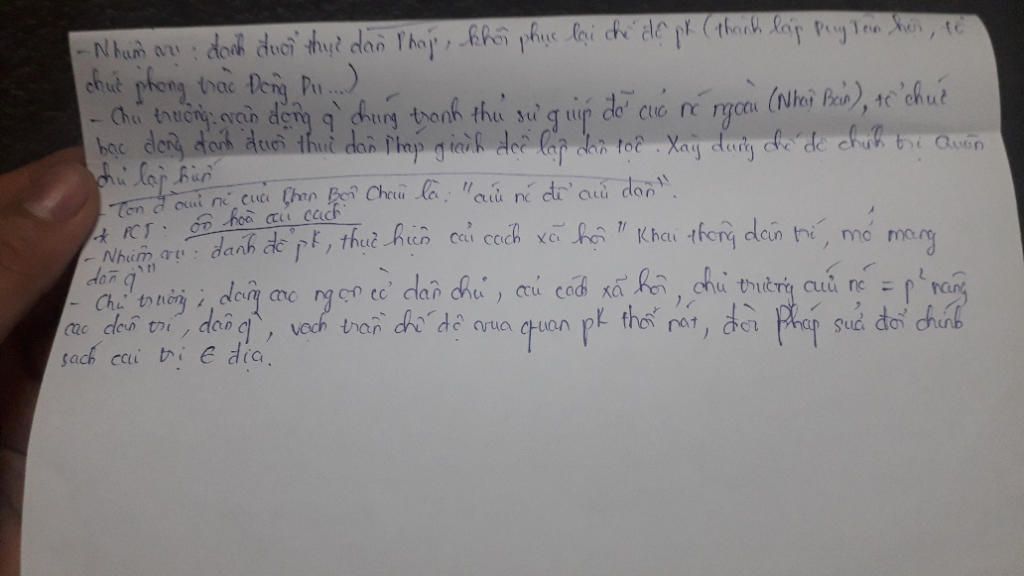 - Nhiệm vụ: đánh đuổi thực dân Pháp, khôi phục lại chế độ pk (thành lập Duy Tân hội, tổ
chức phong trào Đông Du...)
- Chủ trương: vận động q chúng tranh thủ sự giúp đỡ của nc ngoài (Nhật Bản), tổ chức
bạo động đánh đuổi thực dân Pháp giành độc lập dân tộc. Xây dựng chế độ chính trị Quân
chủ lập hiến
- Con đ cứu nc của Phan Bội Châu là: "cứu nc để cứu dân".
* PCT: ôn hoà cải cách
- Nhiệm vụ: đánh đổ pk, thực hiện cải cách xã hội "Khai thông dân trí, mở mang
dân q"
- Chủ trương: dâng cao ngọn cờ dân chủ, cải cách xã hội, chủ trương cứu nc = p² nâng
cao dân trí, dân q, vạch trần chế độ vua quan pk thối nát, đòi Pháp sửa đổi chính
sách cai trị € địa.